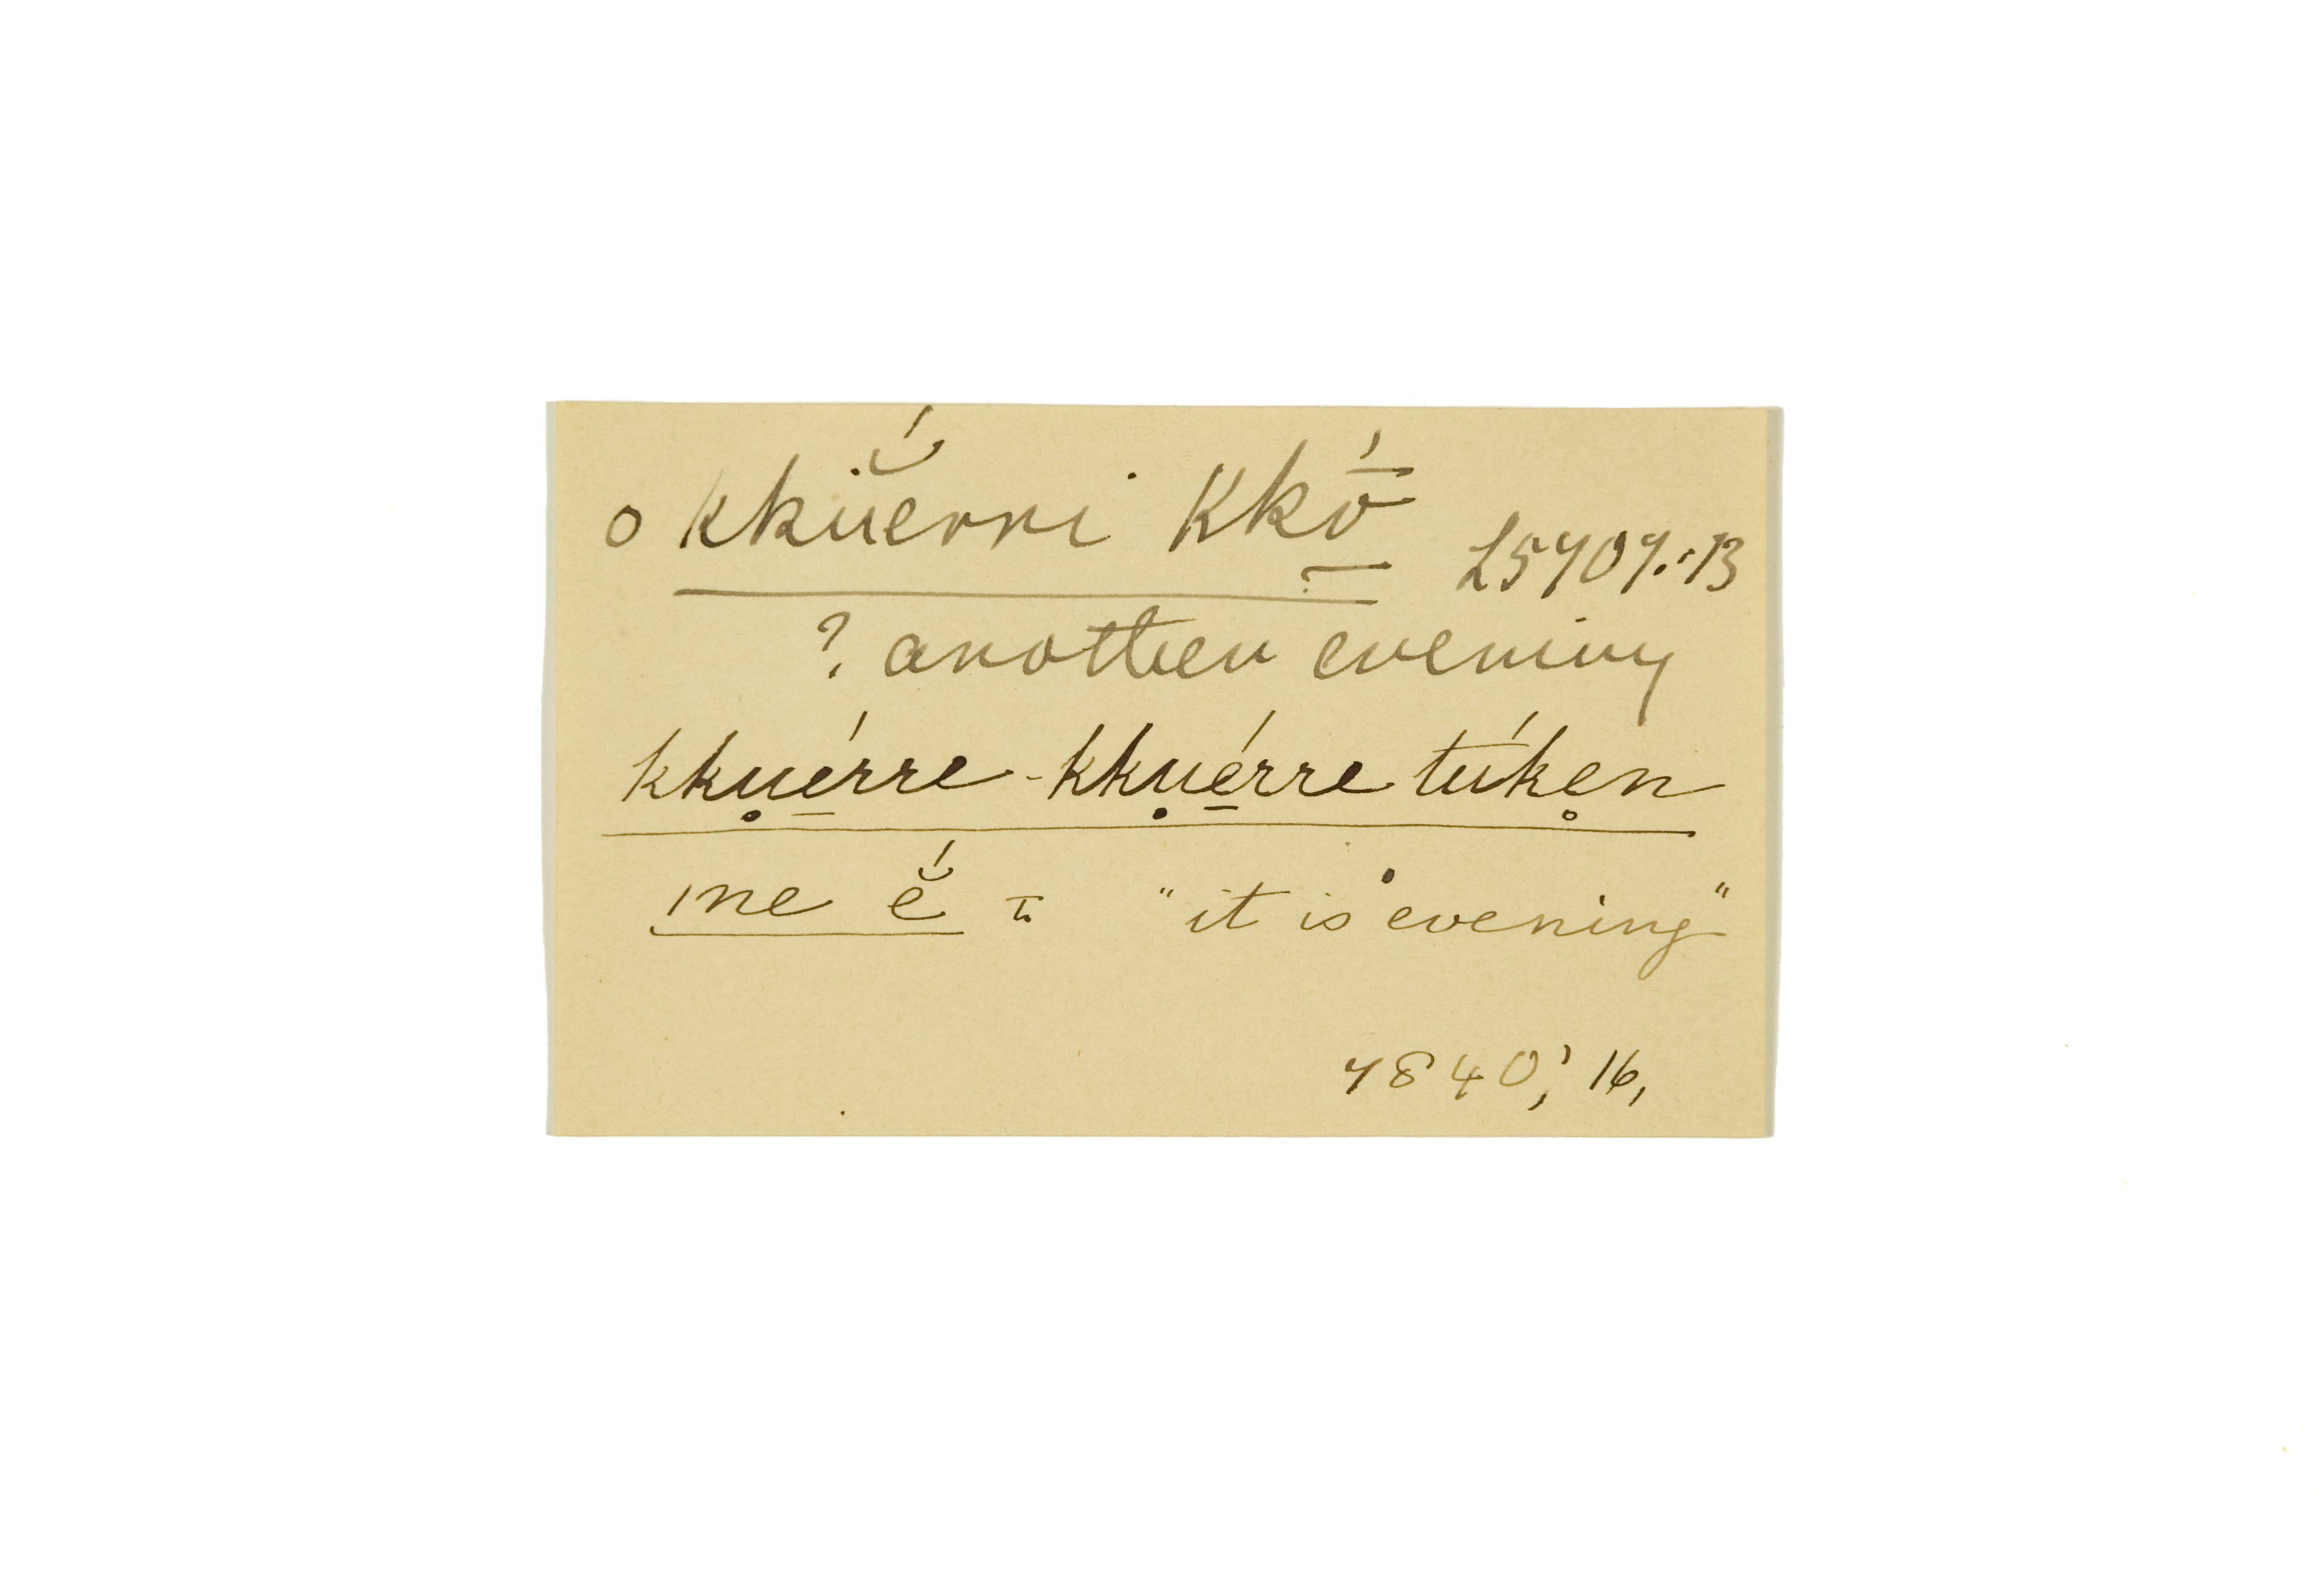 o kkŭ̈́erri kkṓ̱
L5707.:13
? another evening
kkụé̱rre-kkụé̱rre túke̥n
me ĕ́ = "it is evening"
7840; 16,